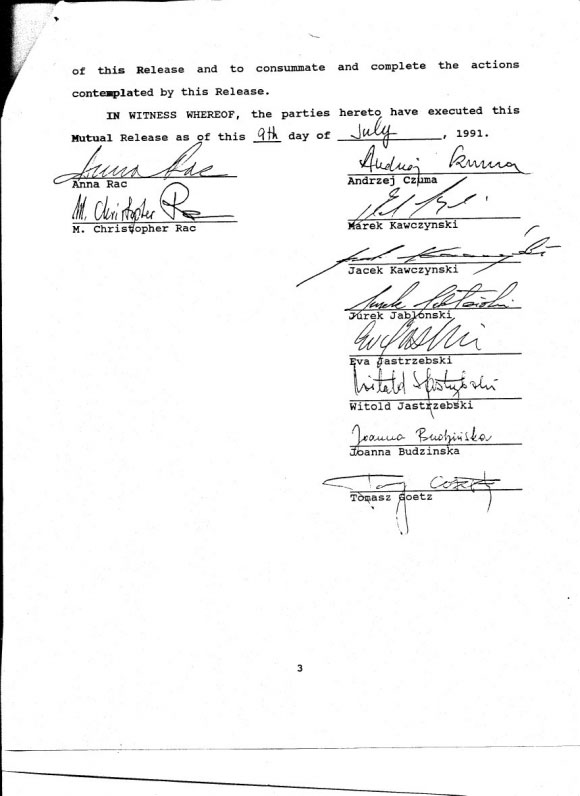 of this Release and to consummate and complete the actions
contemplated by this Release.
IN WITNESS WHEREOF, the parties hereto have executed this
Mutual Release as of this 9th day of July, 1991.
Anna Rac
Anna Rac
M. Christopher Rac
M. Christopher Rac
Andrzej Czuma
Andrzej Czuma
Marek Kawczynski
Jacek Kawczynski
Jurek Jablonski
Eva Jastrzebski
Witold Jastrzebski
Witold Jastrzebski
Joanna Budzińska
Joanna Budzinska
Tomasz Goetz
3